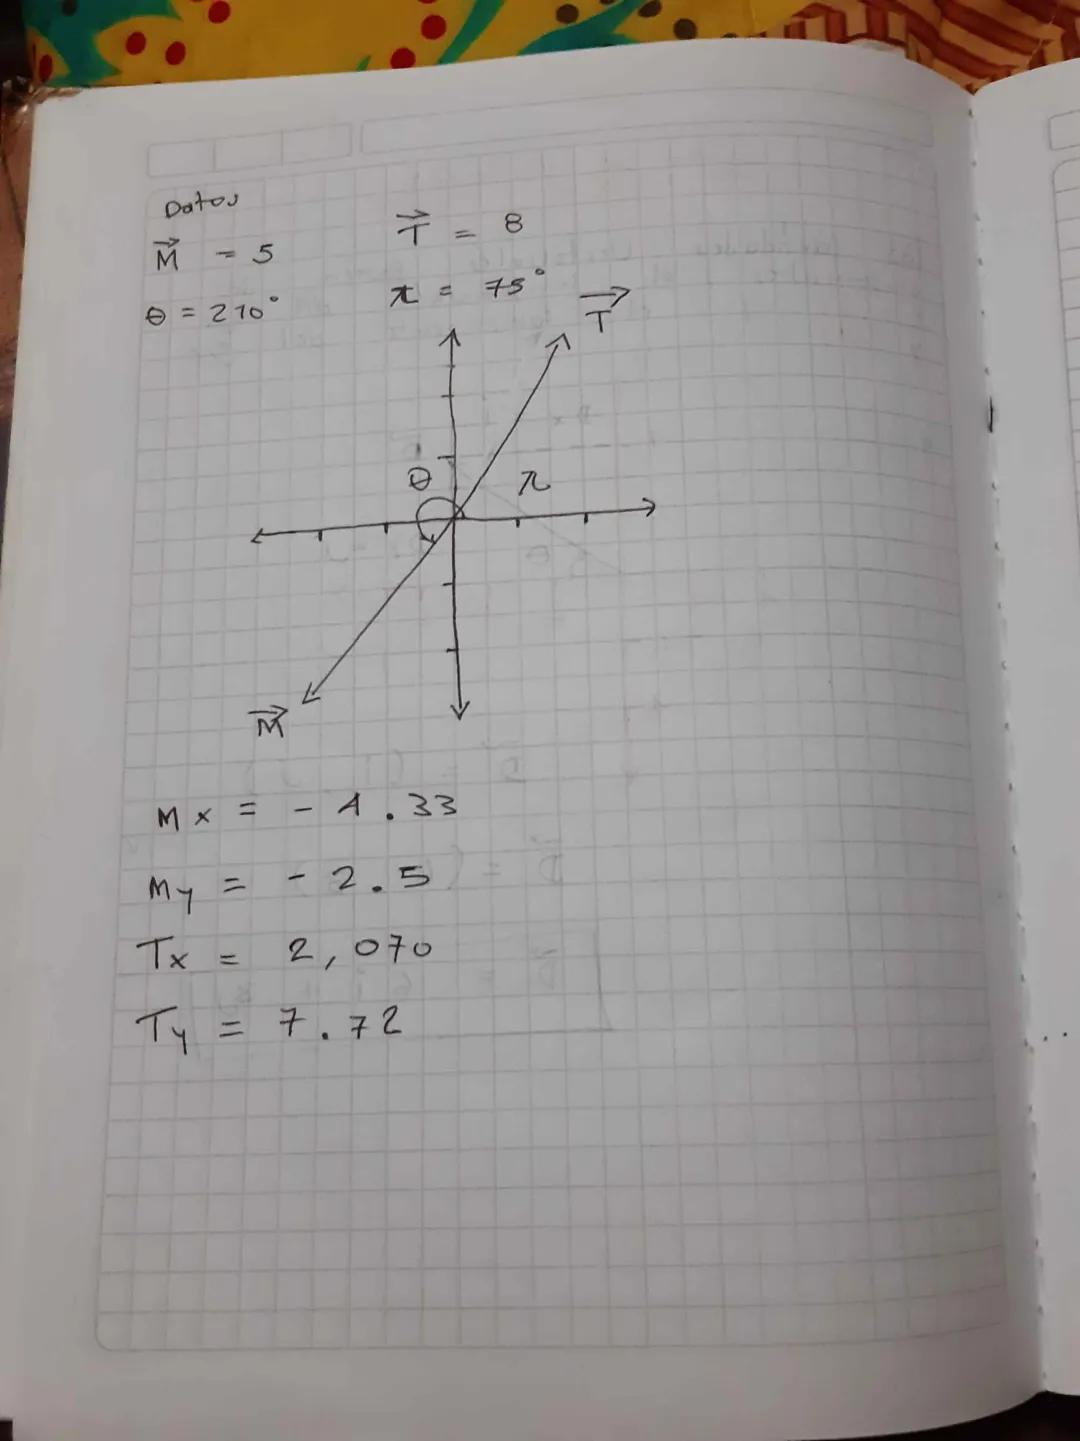 Datos
M = 5
T = 8
θ = 210°
π = 75°
T
θ
π
M
Mx = - 4.33
My = - 2.5
Tx = 2,070
Ty = 7.72